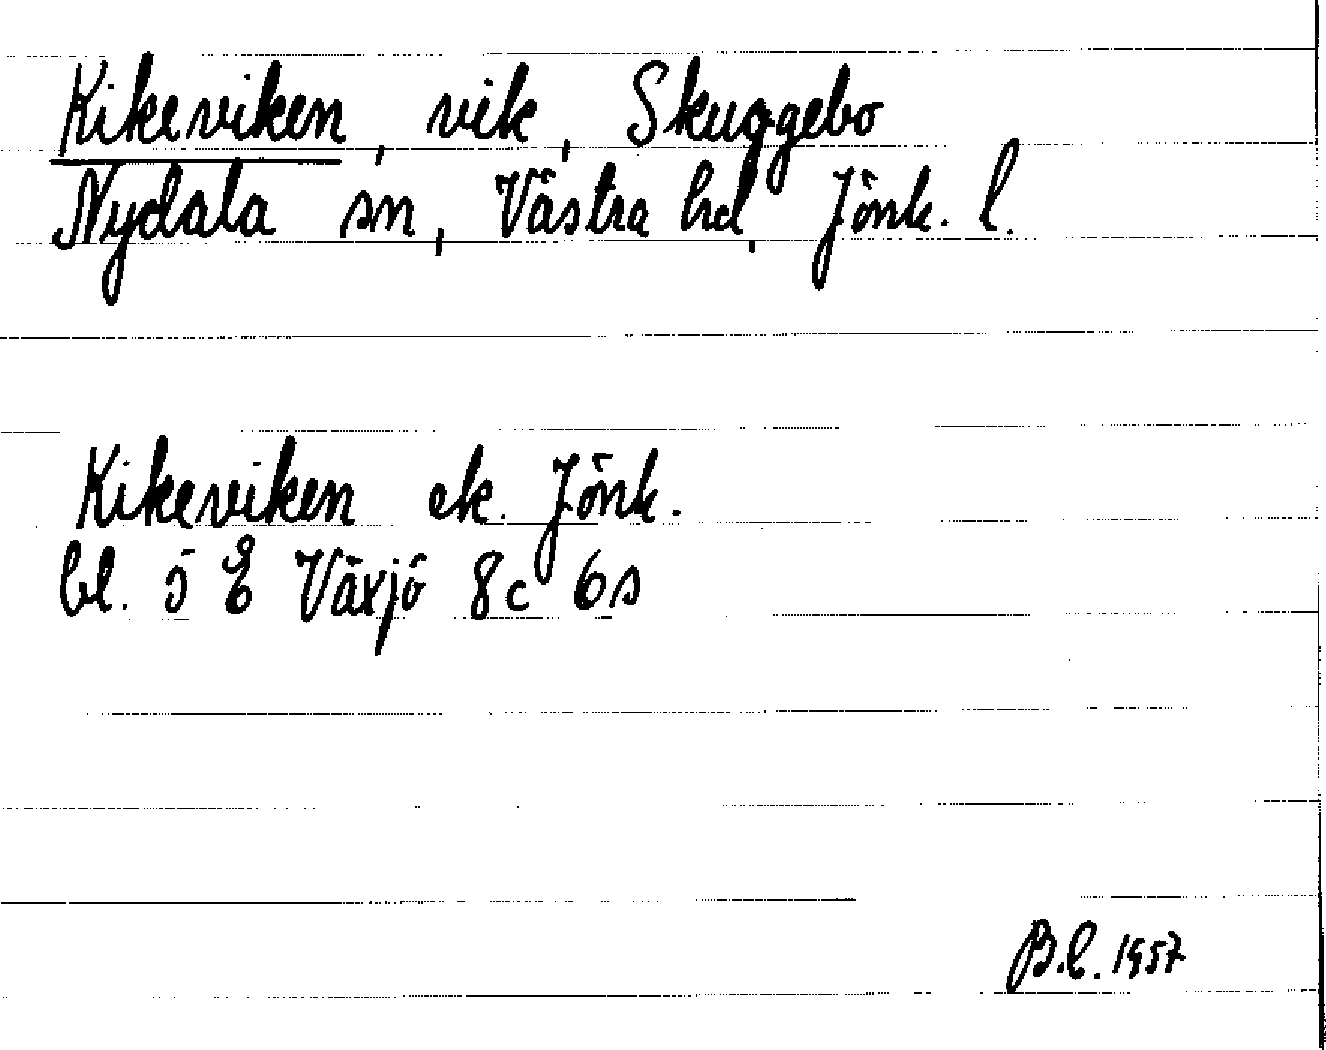 Kikeviken, vik, Skuggebo
Nydala sn, Västra hd, Jönk. l.
Kikeviken ek. Jönk.
bl. 5 E Växjö 8c 6s
B.l. 1957